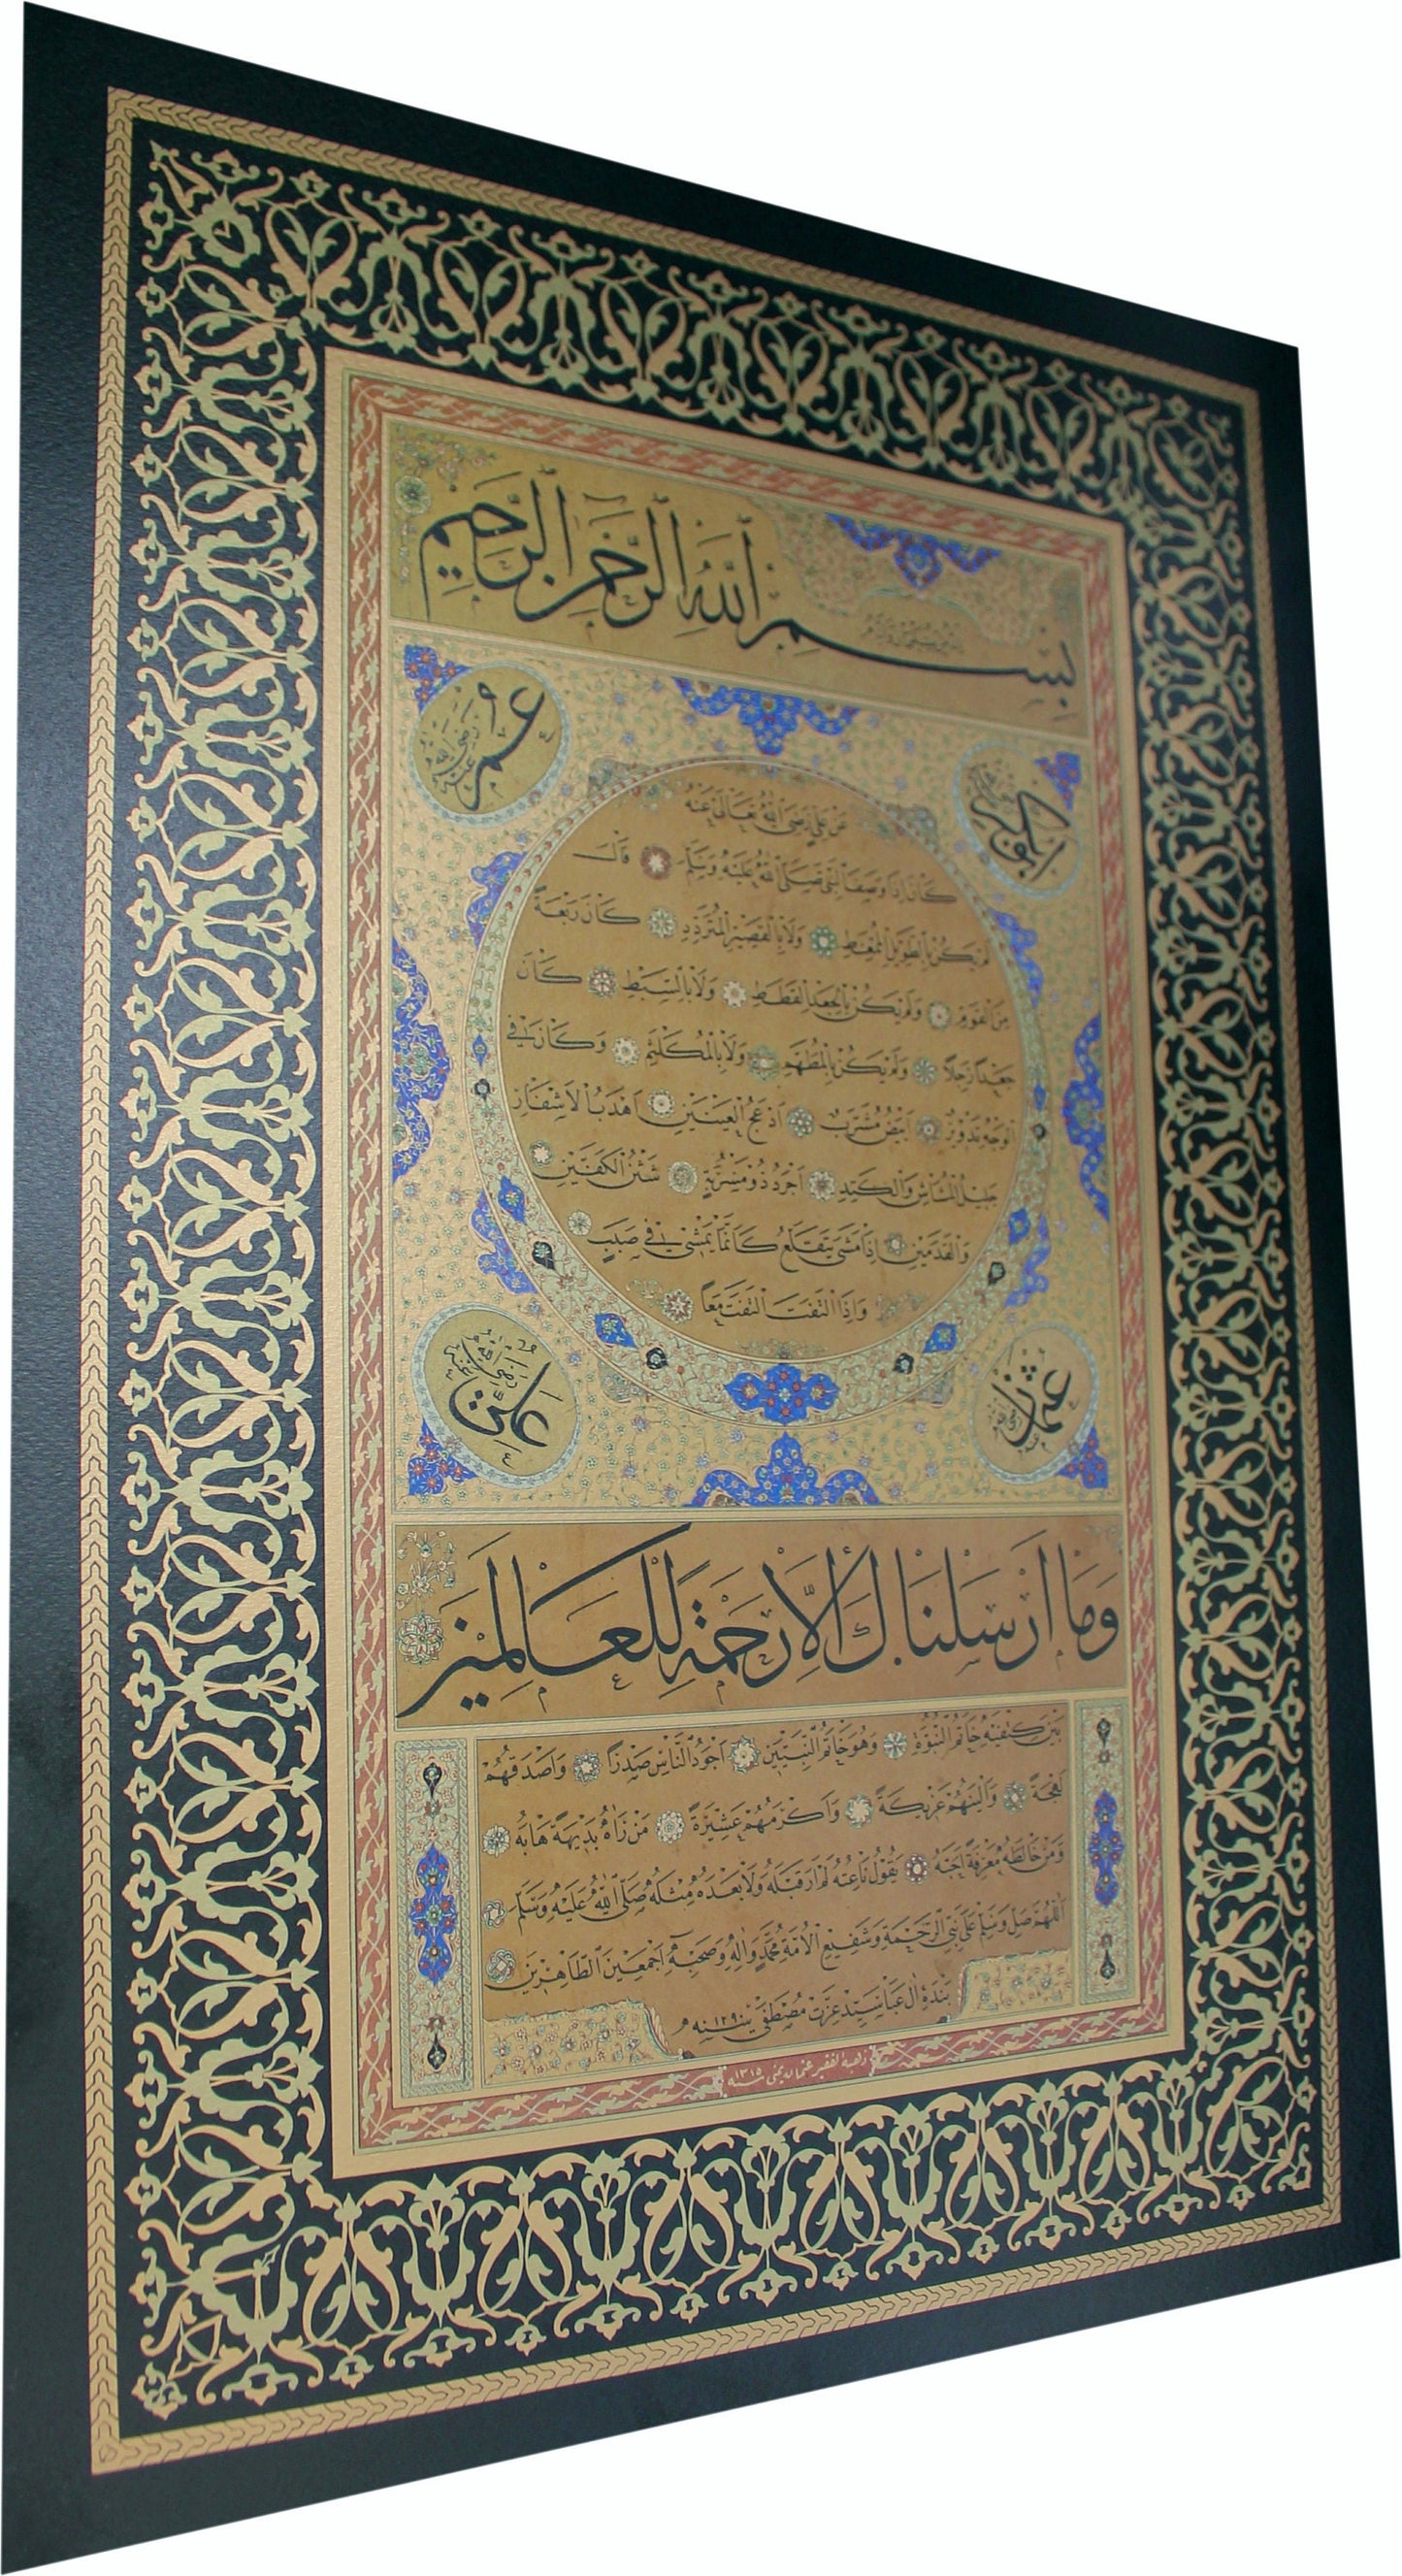 بسم الله الرحمن الرحيم
ابو بكر
عمر رضي الله عنه
عن علي رضي الله تعالى عنه
كان اذا وصف النبي صلى الله عليه وسلم قال
لم يكن بالطويل الممغط ولا بالقصير المتردد كان ربعة
من القوم ولم يكن بالجعد القطط ولا بالسبط كان
جعدا رجلا ولم يكن بالمطهم ولا بالمكلثم وكان في
الوجه تدوير ابيض مشرب ادعج العينين اهدب الاشفار
جليل المشاش والكتد اجرد ذو مسربة شثن الكفين
والقدمين اذا مشى يتقلع كانما يمشي في صبب
واذا التفت التفت معا
عثمان رضي الله عنه
علي رضي الله عنه
وما ارسلناك الا رحمة للعالمين
بين كتفيه خاتم النبوة وهو خاتم النبيين اجود الناس صدرا واصدقهم
لهجة والينهم عريكة واكرمهم عشيرة من رآه بديهة هابه
ومن خالطه معرفة احبه يقول ناعته لم ار قبله ولا بعده مثله صلى الله عليه وسلم
اللهم صل وسلم على نبي الرحمة وشفيع الامة محمد واله وصحبه اجمعين الطاهرين
بنده ال عبا سيد عزت مصطفى سنه ١٢٩٠
ذهبه الفقير عثمان يمني سنه ١٣١٥